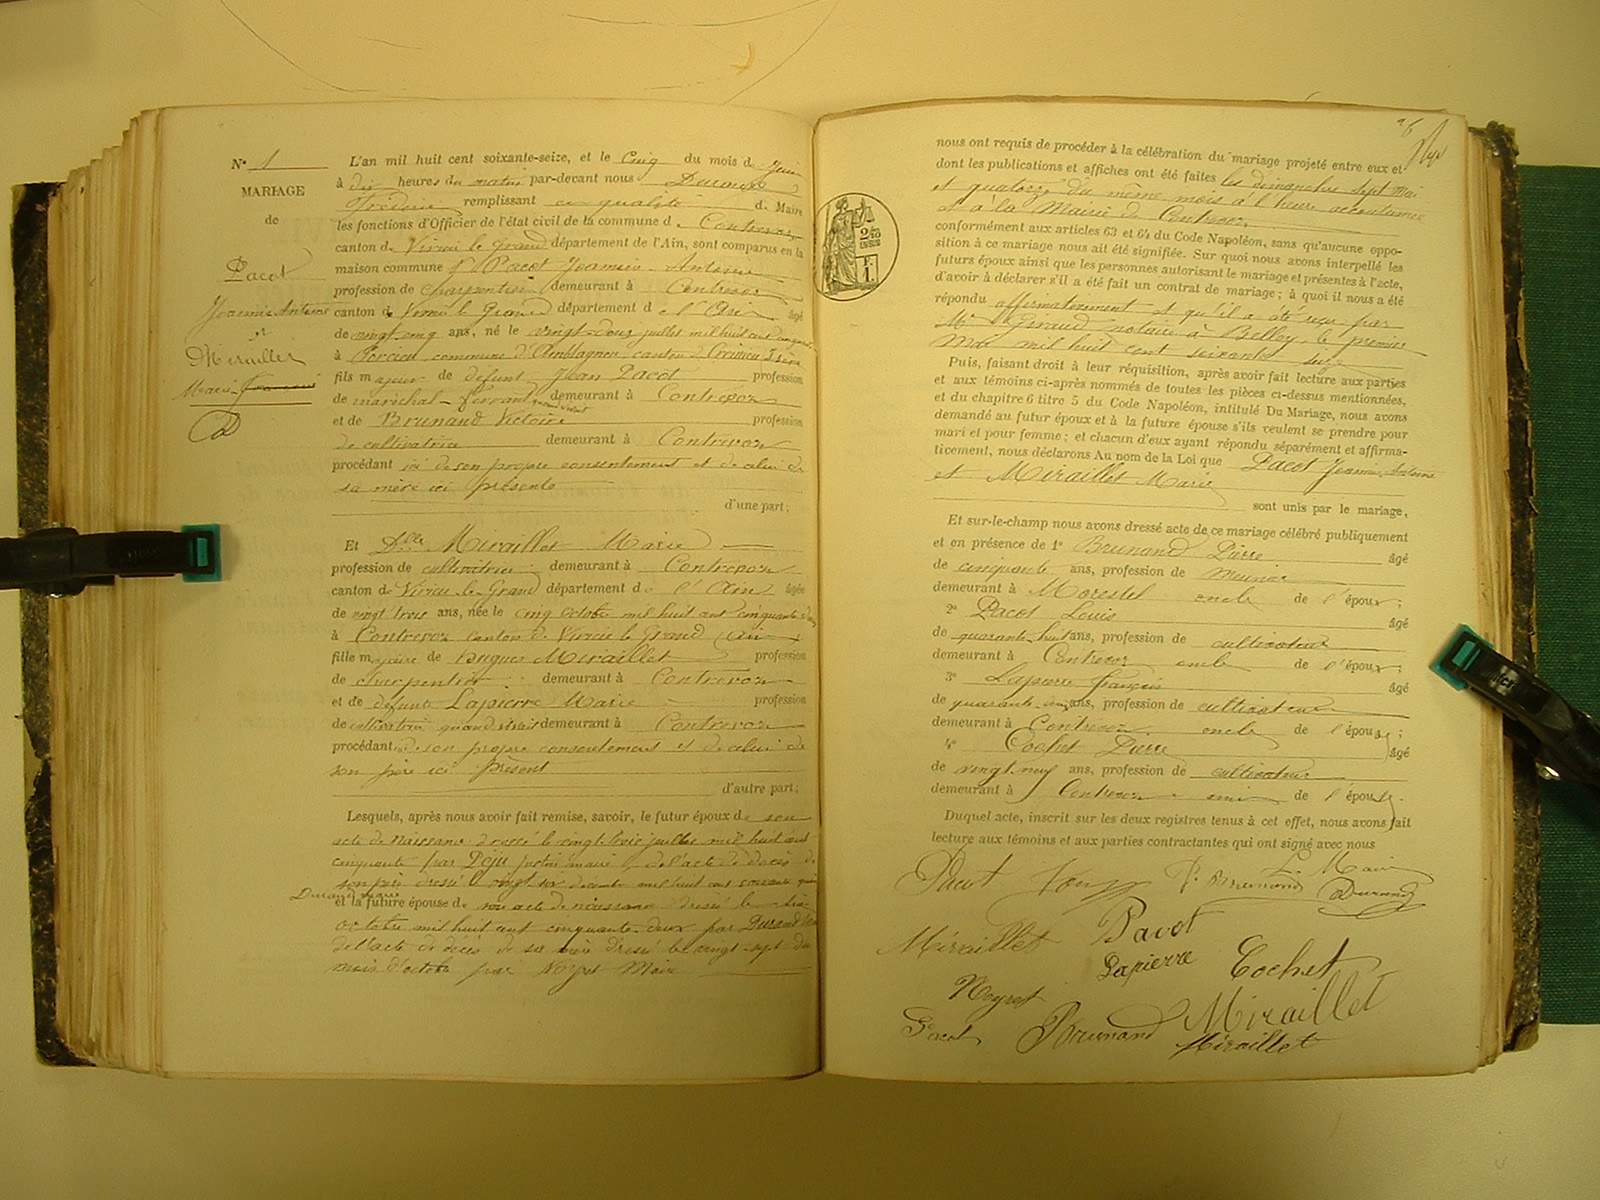 N° 1
MARIAGE
de
Pacot
Joannis Antoine
et
Miraillet
Marie
L'an mil huit cent soixante-seize, et le cinq du mois de Juin
à dix heures du matin par-devant nous Durand
Frédéric remplissant en qualité de Maire
les fonctions d'Officier de l'état civil de la commune de Contrevoz
canton de Virieu le Grand département de l'Ain, sont comparus en la
maison commune Pacot Joannis Antoine
profession de charpentier demeurant à Contrevoz
canton de Virieu le Grand département de l'Ain âgé
de vingt cinq ans, né le vingt deux juillet mil huit cent cinquante
à commune d'Amblagnieu canton de Crémieu Isère
fils majeur de défunt Jean Pacot profession
de maréchal-ferrant demeurant à Contrevoz
et de Brunand Victoire profession
de cultivatrice demeurant à Contrevoz
procédant ici de son propre consentement et de celui de
sa mère ici présente
d'une part;
Et Dlle Miraillet Marie
profession de cultivatrice demeurant à Contrevoz
canton de Virieu le Grand département de l'Ain âgée
de vingt trois ans, née le cinq octobre mil huit cent cinquante deux
à Contrevoz canton de Virieu le Grand Ain
fille majeure de Hugues Miraillet profession
de charpentier demeurant à Contrevoz
et de défunte Lapierre Marie profession
de cultivatrice quand vivait demeurant à Contrevoz
procédant de son propre consentement et de celui de
son père ici présent
d'autre part;
Lesquels, après nous avoir fait remise, savoir, le futur époux de son
acte de naissance dressé le vingt trois juillet mil huit cent
cinquante par Déju maire, de l'acte de décès de
son père dressé vingt six décembre mil huit cent soixante quinze
Durand maire
et la future épouse de son acte de naissance dressé le six
octobre mil huit cent cinquante deux par Durand
de l'acte de décès de sa mère dressé le vingt sept du
mois d'octobre par Neyret Maire
nous ont requis de procéder à la célébration du mariage projeté entre eux et
dont les publications et affiches ont été faites les dimanches sept mai
et quatorze du même mois à l'heure accoutumée
et à la Mairie de Contrevoz
conformément aux articles 63 et 64 du Code Napoléon, sans qu'aucune oppo-
sition à ce mariage nous ait été signifiée. Sur quoi nous avons interpellé les
futurs époux ainsi que les personnes autorisant le mariage et présentes à l'acte,
d'avoir à déclarer s'il a été fait un contrat de mariage; à quoi il nous a été
répondu affirmativement et qu'il a été reçu par
Me Giraud notaire à Belley, le premier
mai mil huit cent soixante seize
Puis, faisant droit à leur réquisition, après avoir fait lecture aux parties
et aux témoins ci-après nommés de toutes les pièces ci-dessus mentionnées,
et du chapitre 6 titre 5 du Code Napoléon, intitulé Du Mariage, nous avons
demandé au futur époux et à la future épouse s'ils veulent se prendre pour
mari et pour femme; et chacun d'eux ayant répondu séparément et affirma-
tivement, nous déclarons Au nom de la Loi que Pacot Joannis Antoine
et Miraillet Marie
sont unis par le mariage,
Et sur-le-champ nous avons dressé acte de ce mariage célébré publiquement
et en présence de 1° Brunand Pierre âgé
de cinquante ans, profession de meunier
demeurant à Morestel oncle de l'époux;
2° Pacot Louis âgé
de quarante huit ans, profession de cultivateur
demeurant à Contrevoz oncle de l'époux;
3° Lapierre François âgé
de quarante ans, profession de cultivateur
demeurant à Contrevoz oncle de l'épouse;
4° Cochet Pierre âgé
de vingt neuf ans, profession de cultivateur
demeurant à Contrevoz ami de l'épouse.
Duquel acte, inscrit sur les deux registres tenus à cet effet, nous avons fait
lecture aux témoins et aux parties contractantes qui ont signé avec nous
Pacot P. Brunand Le Maire
Durand
Miraillet Pacot
Lapierre Cochet
Neyret
Pacot Brunand Miraillet
Miraillet